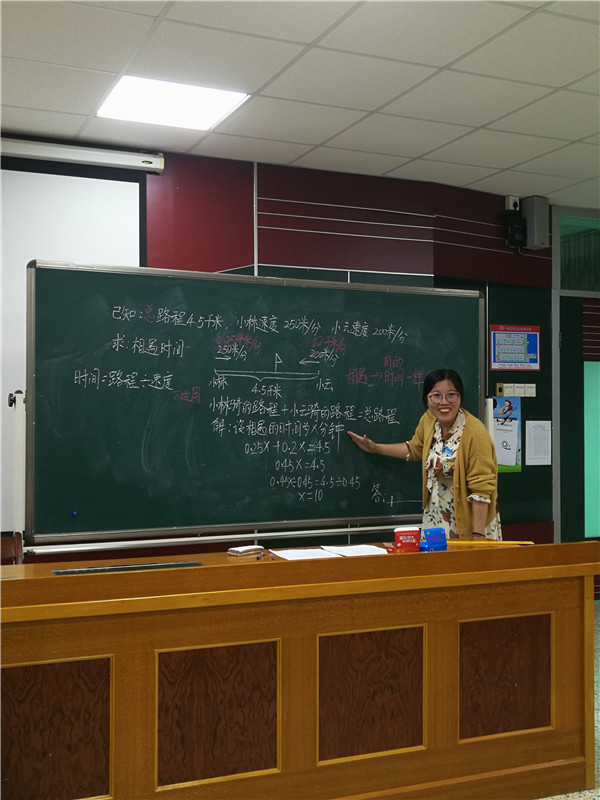 已知:总路程4.5千米, 小林速度250米/分 小云速度200米/分
求:相遇时间
0.25千米/分
250米/分
0.2千米/分
200米/分
时间=路程÷速度
小林
4.5千米
小云
相遇→
时间一样
小林骑的路程+小云骑的路程=总路程
解:设相遇的时间为x分钟
0.25x+0.2x=4.5
0.45x=4.5
0.45x÷0.45=4.5÷0.45
x=10
答: